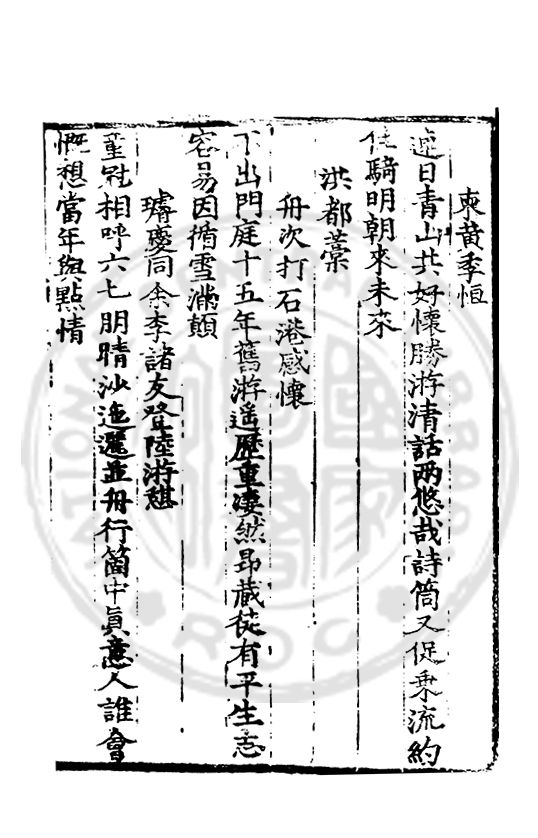 柬黄季恒
連日青山共好懷勝游清話两悠哉詩筒又促乗流約
佳騎明朝來未䒶
洪都藁
舟次打石港感懷
下出門庭十五年舊游遥歴重凄然昻藏徒有平生志
容易因循雪滿顛
璿慶同余李諸友登陸游憇
童冠相呼六七朋晴沙迤邐並舟行箇中眞意人誰會
慨想當年與點情